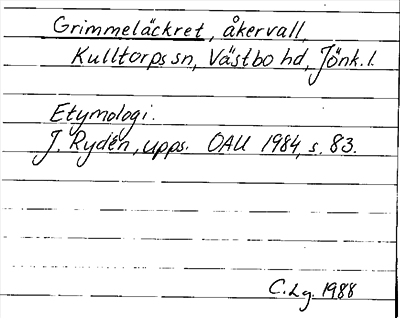 Grimmeläckret, åkervall,
Kulltorps sn, Västbo hd, Jönk. l.
Etymologi.
J. Rydén, upps. OAU 1984, s. 83.
C. Lg. 1988